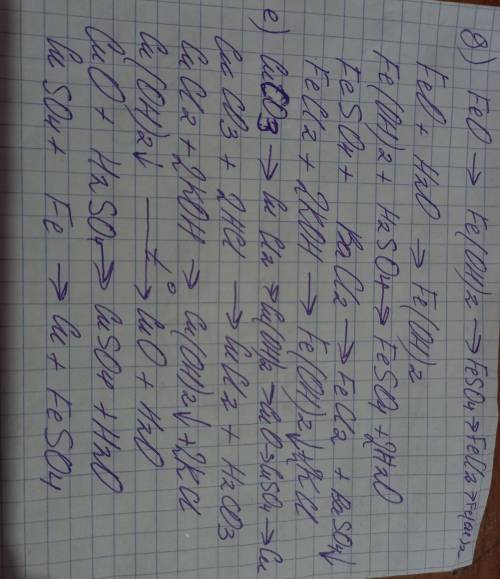 д) FeO → Fe(OH)2 → FeSO4 → FeCl2 → Fe(OH)2
FeO + H2O → Fe(OH)2
Fe(OH)2 + H2SO4 → FeSO4 + 2H2O
FeSO4 + BaCl2 → FeCl2 + BaSO4↓
FeCl2 + 2KOH → Fe(OH)2↓ + 2KCl
е) CuCO3 → CuCl2 → Cu(OH)2 → CuO → CuSO4 → Cu
CuCO3 + 2HCl → CuCl2 + H2CO3
CuCl2 + 2KOH → Cu(OH)2↓ + 2KCl
Cu(OH)2↓ —t°→ CuO + H2O
CuO + H2SO4 → CuSO4 + H2O
CuSO4 + Fe → Cu + FeSO4